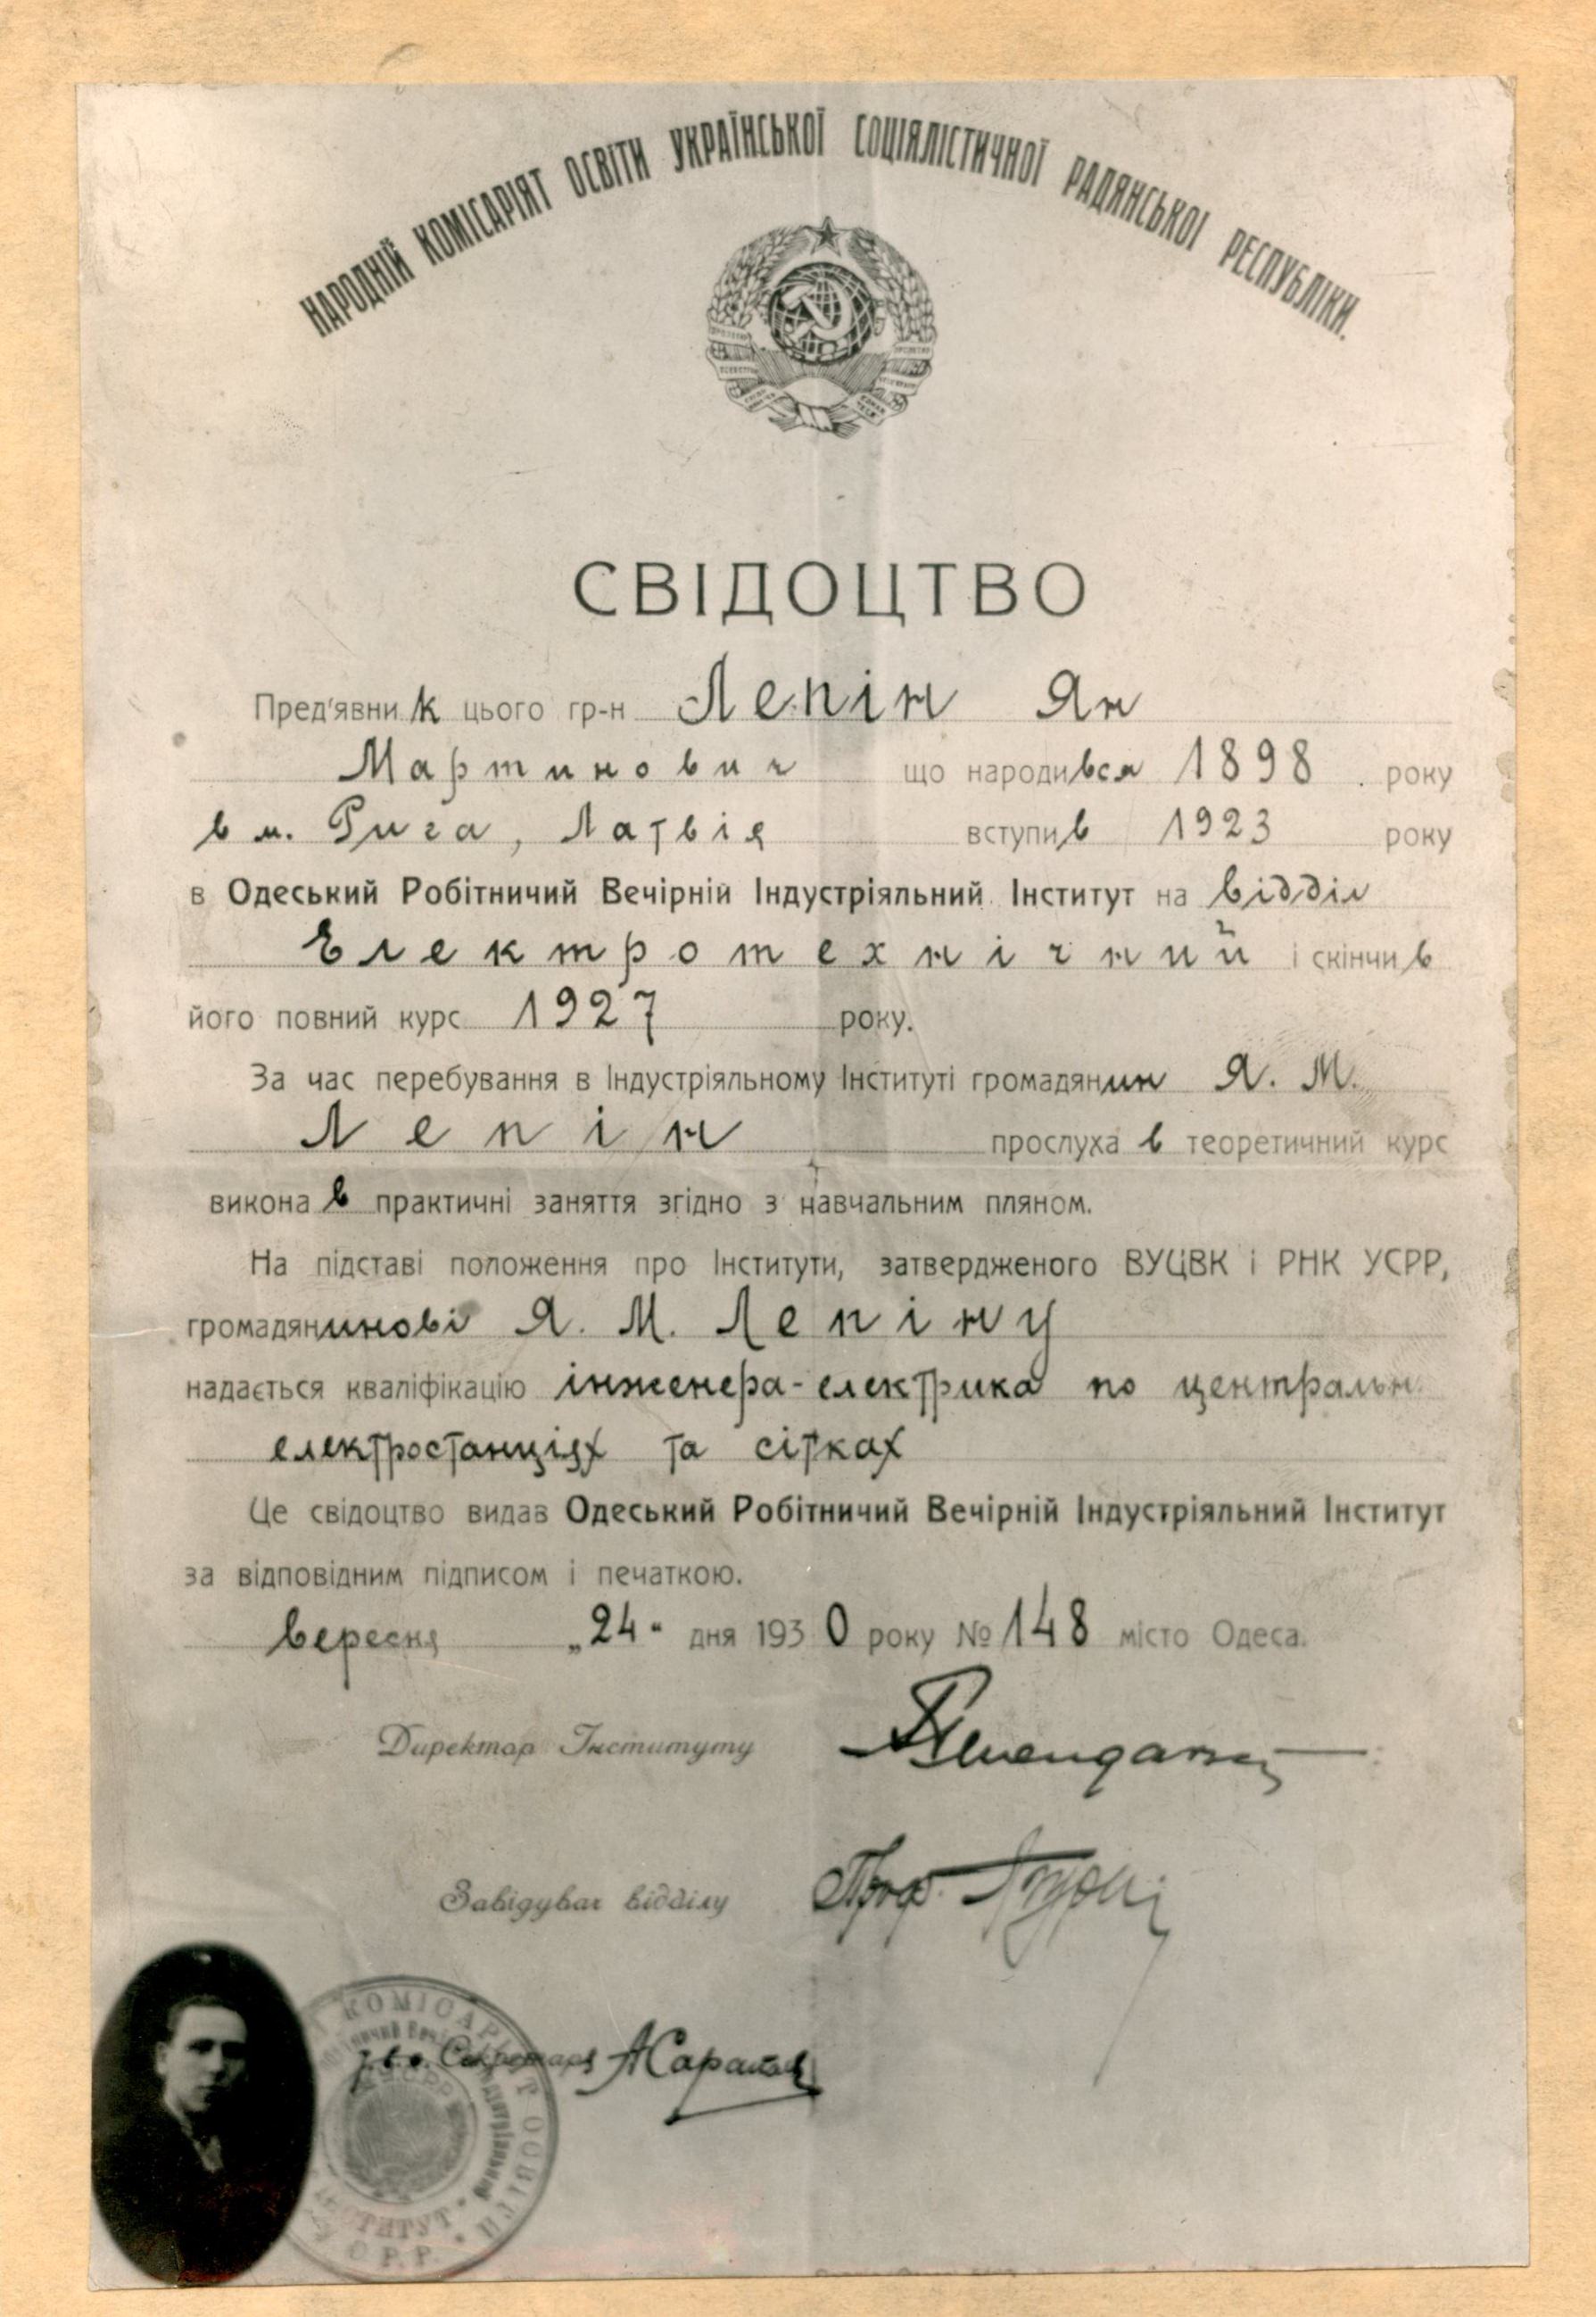 НАРОДНІЙ КОМІСАРІЯТ ОСВІТИ УКРАЇНСЬКОЇ СОЦІЯЛІСТИЧНОЇ РАДЯНСЬКОЇ РЕСПУБЛІКИ.
СВІДОЦТВО
Пред'явник цього гр-н Лепін Ян
Мартинович що народився 1898 року
в м. Рига, Латвія вступив 1923 року
в Одеський Робітничий Вечірній Індустріяльний Інститут на відділ
Електротехнічний і скінчив
його повний курс 1927 року.
За час перебування в Індустріяльному Інституті громадянин Я. М.
Лепін прослухав теоретичний курс
виконав практичні заняття згідно з навчальним пляном.
На підставі положення про Інститути, затвердженого ВУЦВК і РНК УСРР,
громадянинові Я. М. Лепіну
надається кваліфікацію інженера-електрика по центральн.
електростанціях та сітках
Це свідоцтво видав Одеський Робітничий Вечірній Індустріяльний Інститут
за відповідним підписом і печаткою.
вересня „24" дня 1930 року № 148 місто Одеса.
Директор Інституту
Завідувач відділу Проф.
Секретаря
КОМІСАРІЯТ ОСВІТИ
УСРР
ІНСТИТУТ